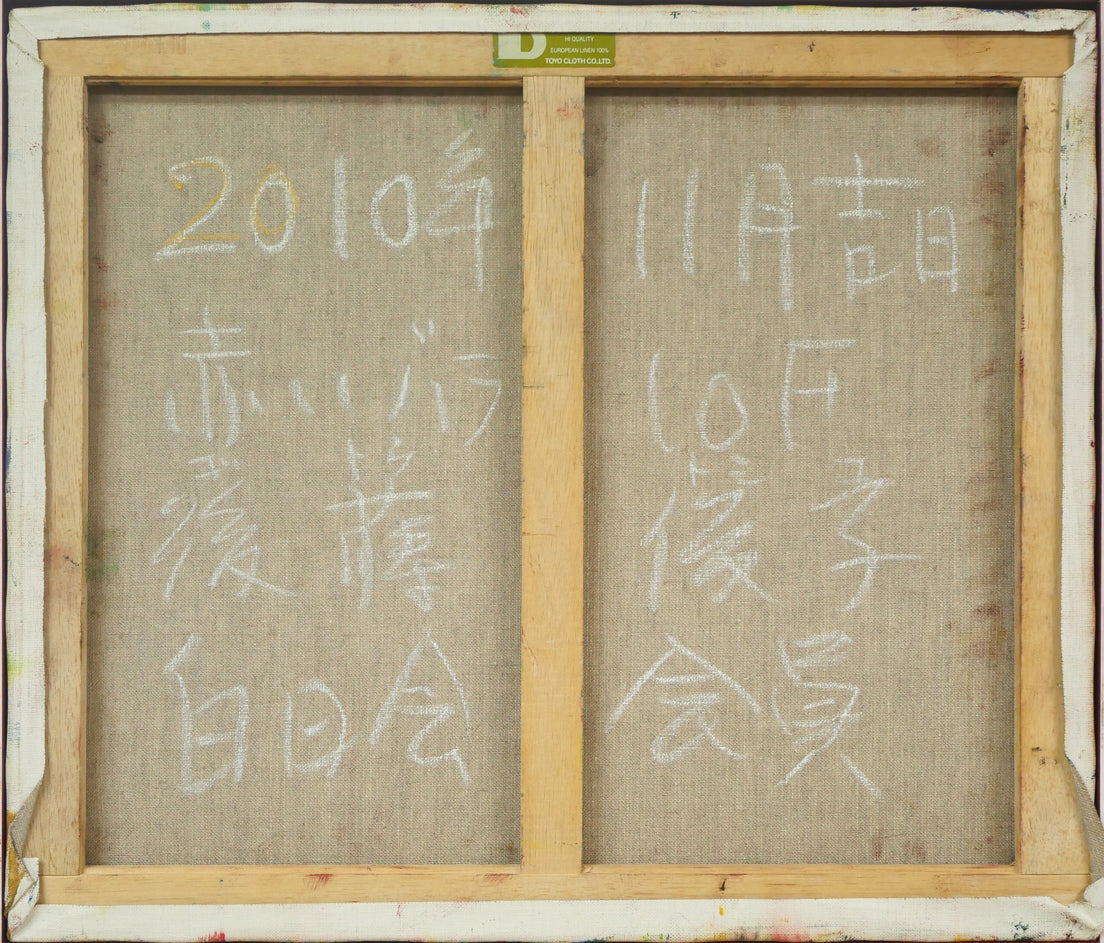 HI QUALITY
EUROPEAN LINEN 100%
TOYO CLOTH CO.,LTD.
2010年 11月吉日
赤いバラ 10F
後藤 俊子
白日会 会員